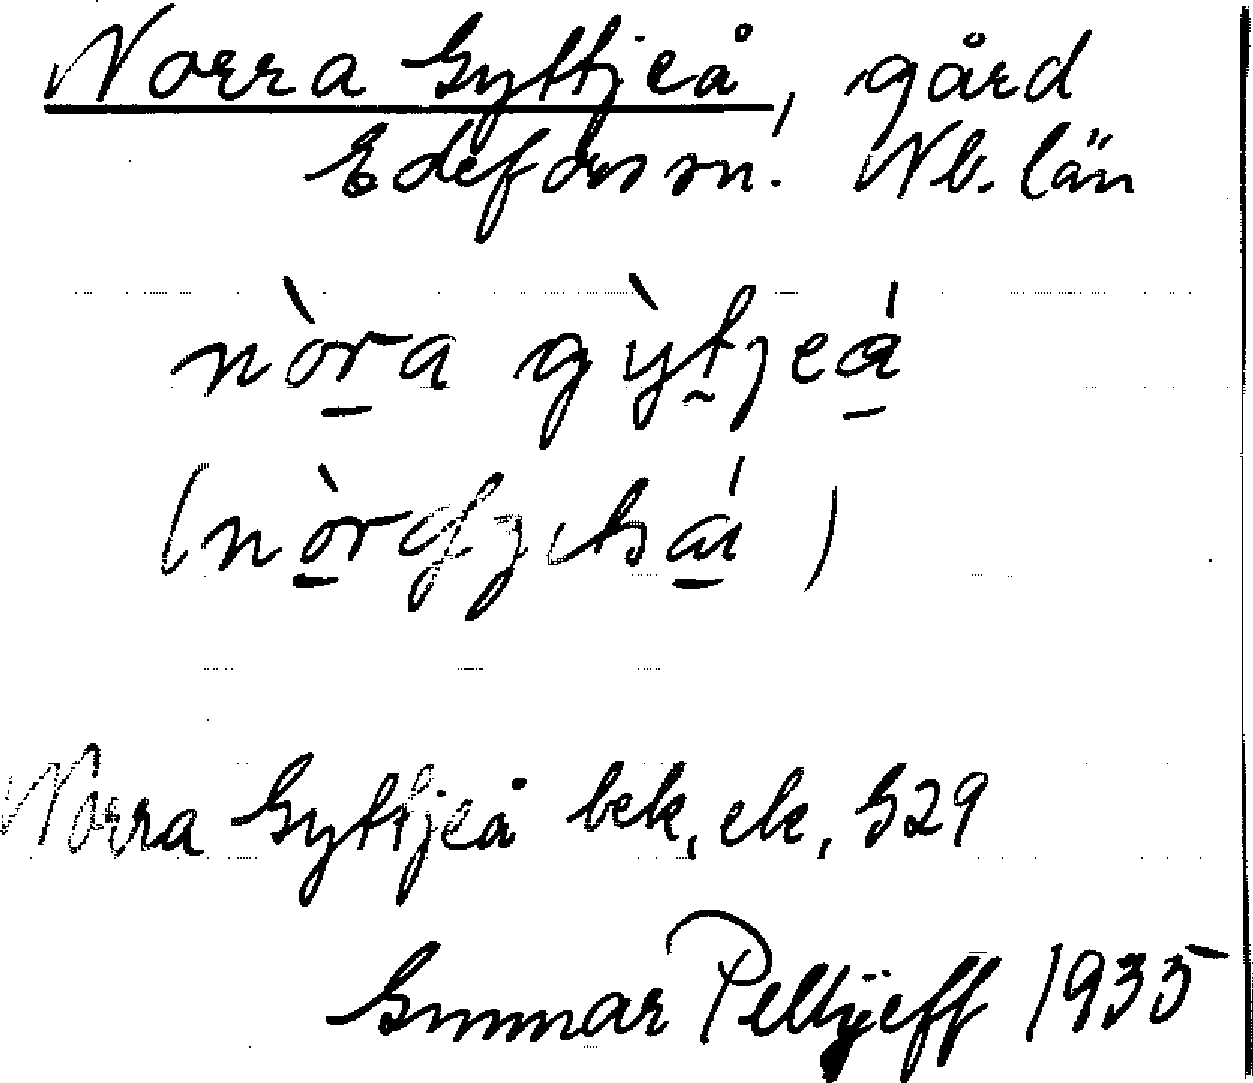 Norra Gyttjeå, gård
Edefors sn. Nb. län
nòra gỳtjeá
Norra Gyttjeå bek, ek, 529
Gunnar Pellijeff 1935